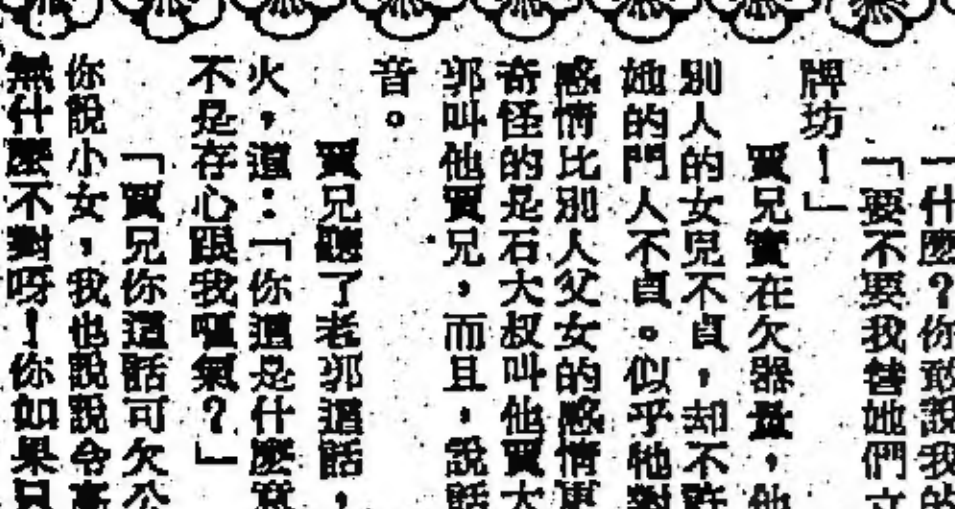 「什麼？你敢說我的
「要不要我替她們立
牌坊！」
賈兄實在欠器量，他
別人的女兒不貞，却不許
她的門人不貞。似乎他對
感情比別人父女的感情更
奇怪的是石大叔叫他賈大
郭叫他賈兄，而且，說話
音。
賈兄聽了老郭這話，
火，道：「你這是什麼意
不是存心跟我嘔氣？」
「賈兄你這話可欠公
你說小女，我也說說令高
無什麼不對呀！你如果只